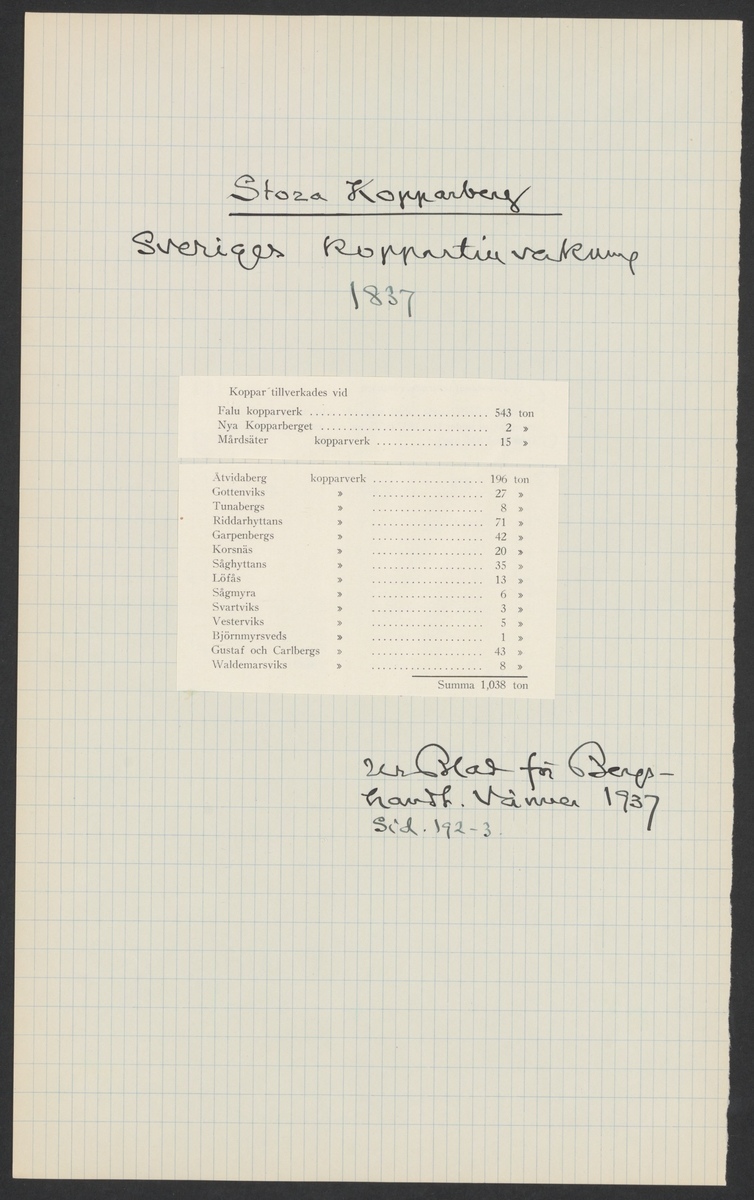 Stora Kopparberg
Sveriges Koppartillverkning
1837
Koppar tillverkades vid
Falu kopparverk ................................ 543 ton
Nya Kopparberget .............................. 2 »
Mårdsäter kopparverk .................... 15 »
Åtvidaberg kopparverk .................... 196 ton
Gottenviks » .................... 27 »
Tunabergs » .................... 8 »
Riddarhyttans » .................... 71 »
Garpenbergs » .................... 42 »
Korsnäs » .................... 20 »
Såghyttans » .................... 35 »
Löfås » .................... 13 »
Sågmyra » .................... 6 »
Svartviks » .................... 3 »
Vesterviks » .................... 5 »
Björnmyrsveds » .................... 1 »
Gustaf och Carlbergs » .................... 43 »
Waldemarsviks » .................... 8 »
Summa 1,038 ton
Ur Blad för Bergs-
handt. Vänner 1937
Sid. 192-3.